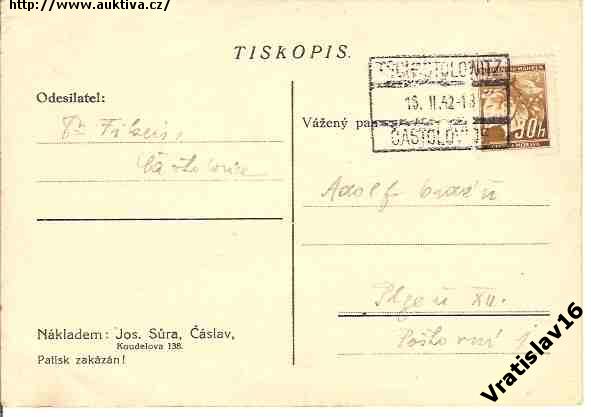 http://www.auktiva.cz/
TISKOPIS.
Odesílatel:
Častolovice
Vážený pan
TSCHASTOLOWITZ
16. II. 42-18
ČASTOLOVICE
30h
Adolf
Plzeň XII.
Poštovní
Nákladem: Jos. Sůra, Čáslav,
Koudelova 138.
Patisk zakázán!
Vratislav16